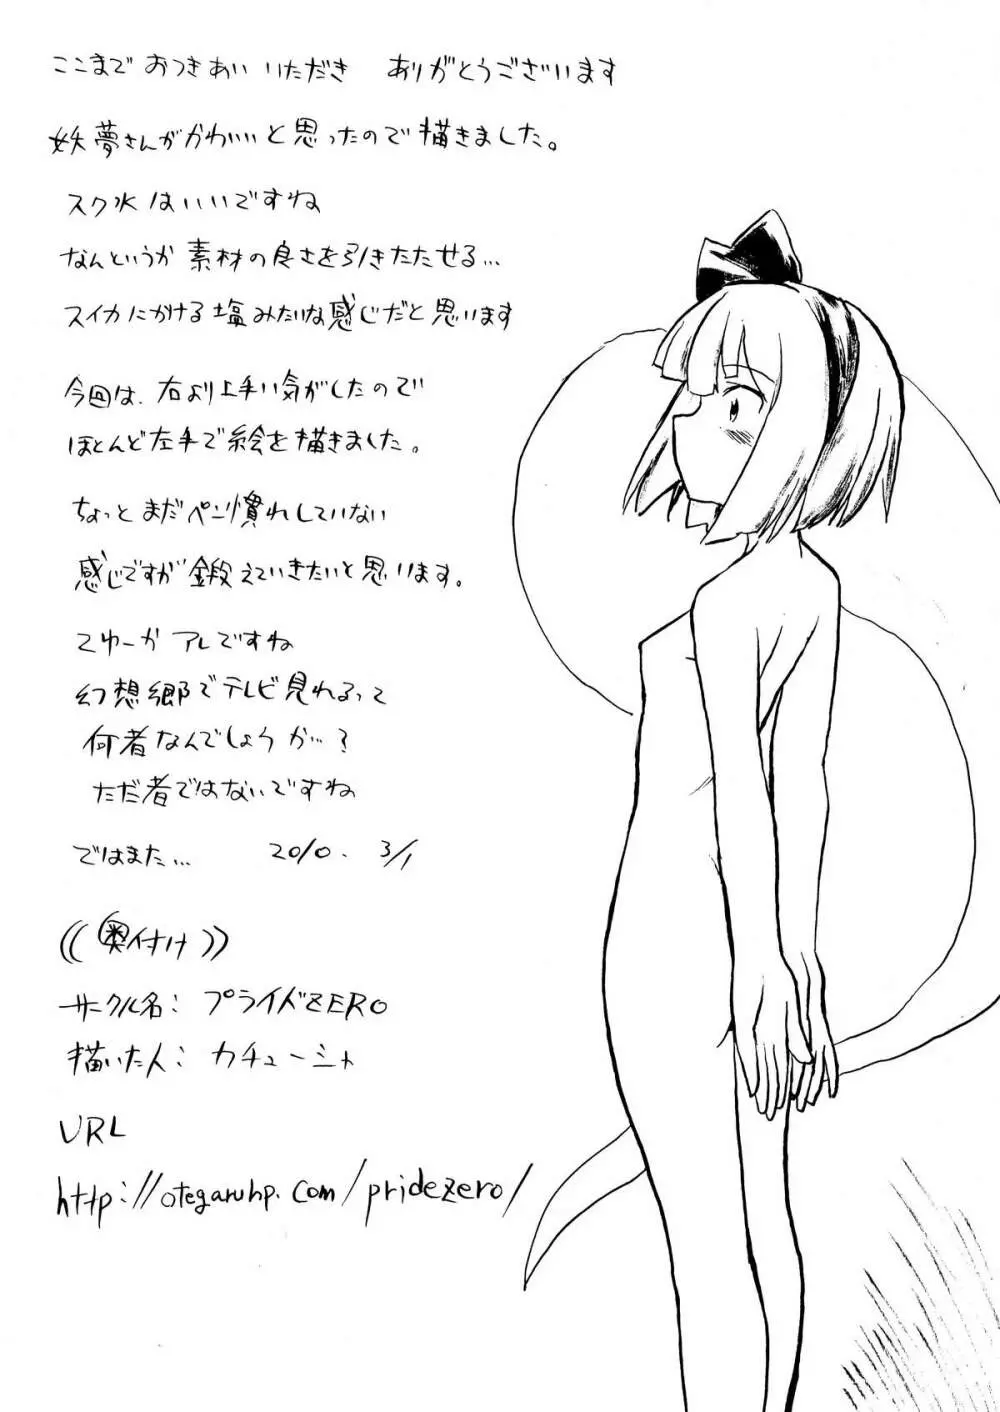 ここまで おつきあい いただき ありがとうございます
妖夢さんがかわいいと思ったので描きました。
スク水はいいですね
なんというか 素材の良さを引きたたせる…
スイカにかける塩みたいな感じだと思います
今回は、右より上手い気がしたので
ほとんど左手で絵を描きました。
ちょっとまだペン慣れしていない
感じですが 鍛えていきたいと思います。
てゆーか アレですね
幻想郷でテレビ見れるって
何者なんでしょうか…?
ただ者ではないですね
ではまた… 2010. 3/1
((奥付け))
サークル名: プライドZERO
描いた人: カチューシャ
URL
http://otegaruhp.com/pridezero/